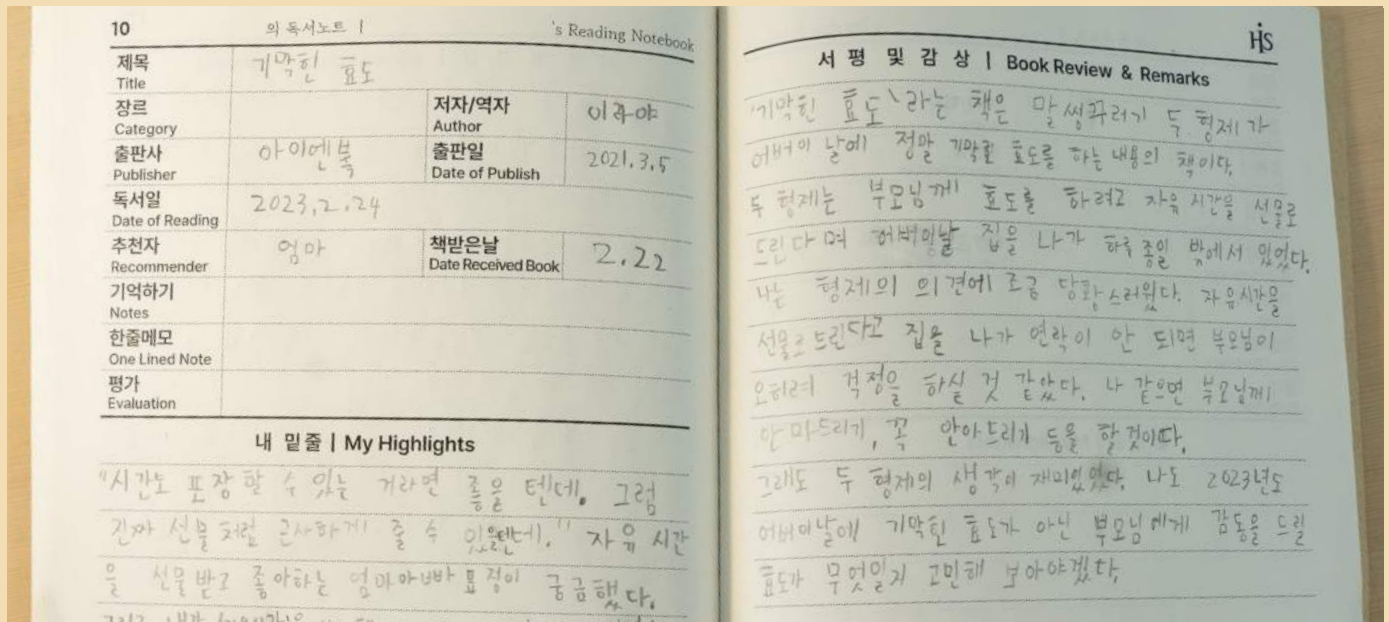 10
의 독서노트 |
's Reading Notebook
제목
Title
기막힌 효도
장르
Category
저자/역자
Author
출판사
Publisher
아이앤북
출판일
Date of Publish
2021.3.5
독서일
Date of Reading
2023.2.24
추천자
Recommender
엄마
책받은날
Date Received Book
2.22
기억하기
Notes
한줄메모
One Lined Note
평가
Evaluation
내 밑줄 | My Highlights
"시간도 포장할 수 있는 거라면 좋을 텐데. 그럼
진짜 선물처럼 근사하게 줄 수 있을텐데." 자유 시간
을 선물 받고 좋아하는 엄마아빠 표정이 궁금했다.
HS
서 평 및 감 상 | Book Review & Remarks
'기막힌 효도'라는 책은 말썽꾸러기 두 형제가
어버이 날에 정말 기막로 효도를 하는 내용의 책이다.
두 형제는 부모님께 효도를 하려고 자유 시간을 선물로
드린다며 어버이날 집을 나가 하루 종일 밖에서 있었다.
나는 형제의 의견에 조금 당황스러웠다. 자유시간을
선물로드린다고 집을 나가 연락이 안 되면 부모님이
오히려 걱정을 하실 것 같았다. 나 같으면 부모님께
안마드리기, 꼭 안아드리기 등을 할것이다.
그래도 두 형제의 생각이 재미있었다. 나도 2023년도
어버이날에 기막힌 효도가 아닌 부모님에게 감동을 드릴
효도가 무엇일지 고민해 보아야겠다.